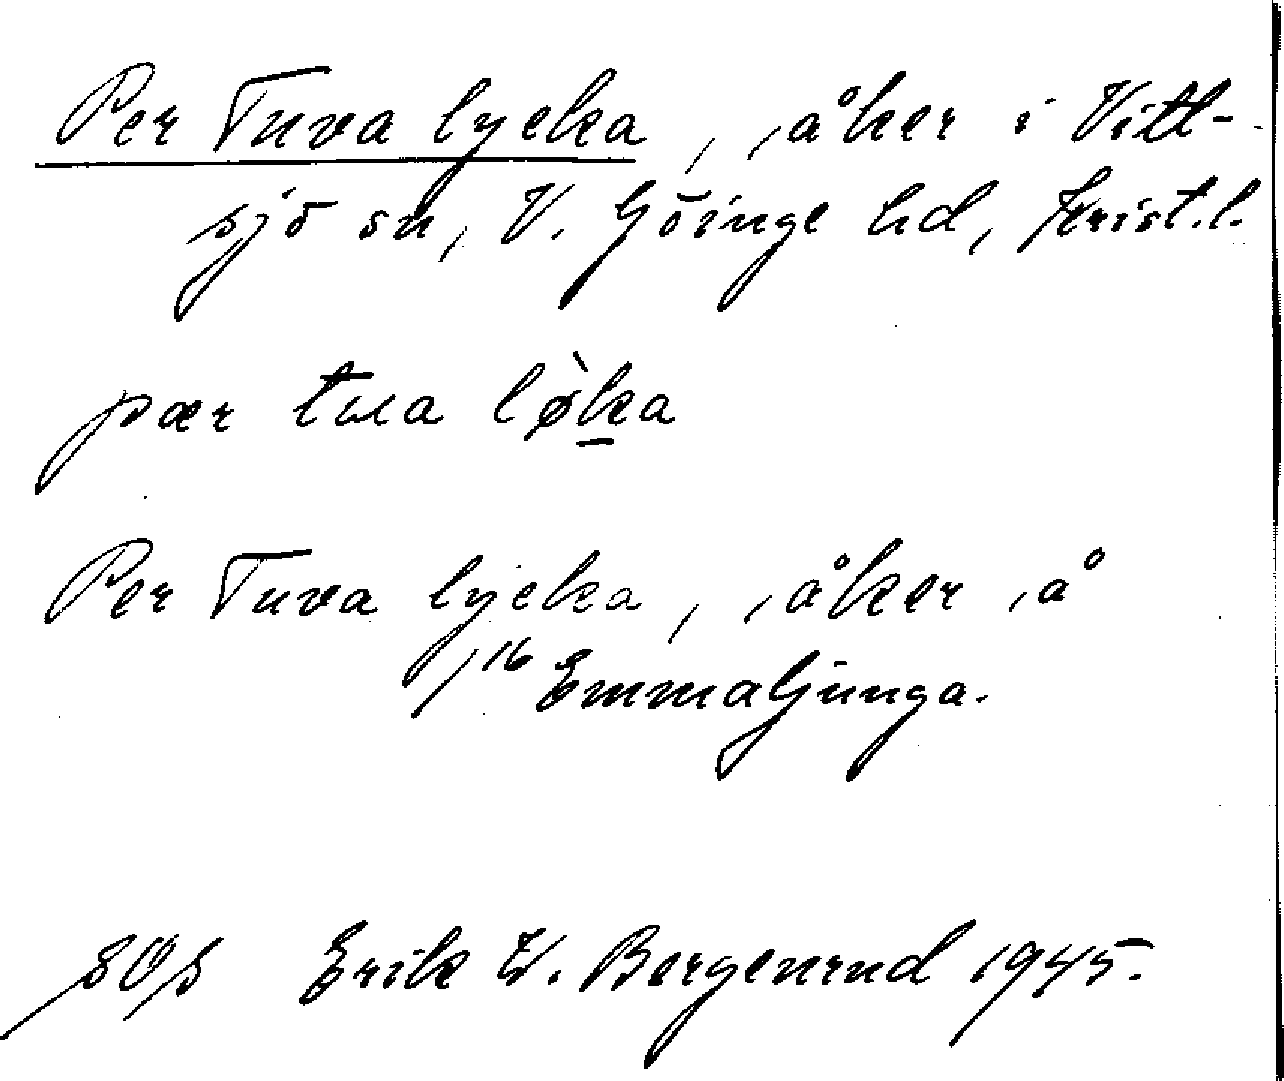 Per Tuva lycka, åker i Vitt-
sjö sn, V. Göinge hd, Krist.l.
pær tua lø̀ka
Per Tuva lycka, åker å
1/16 Emmaljunga.
Erik W. Bergenrud 1945.